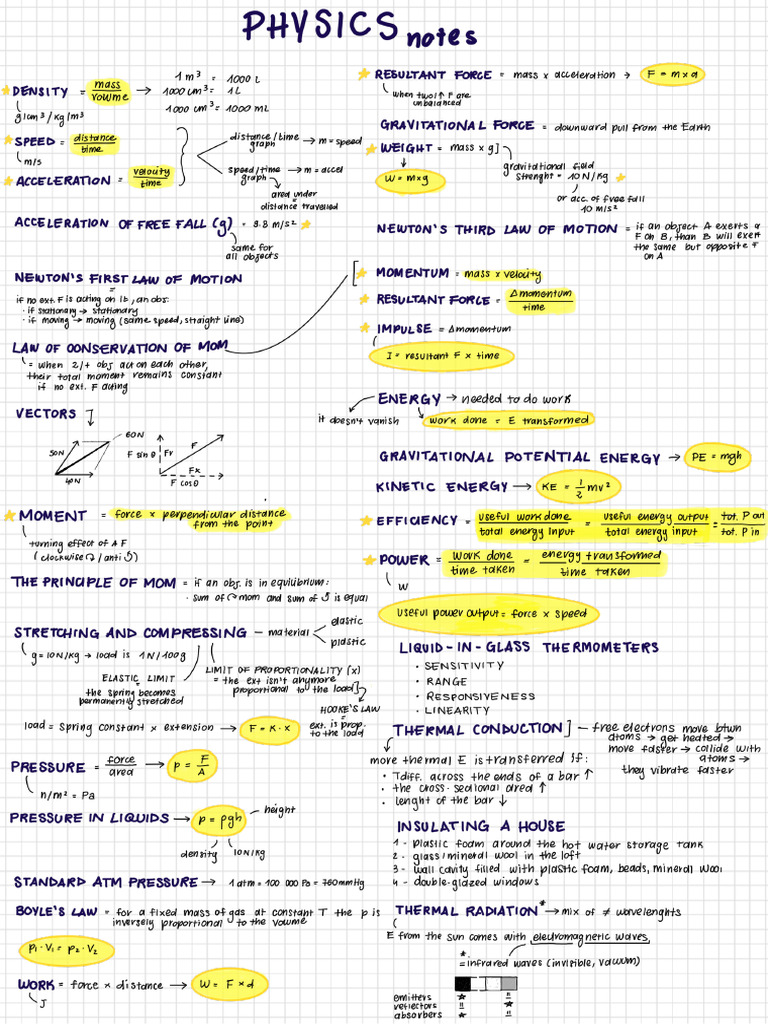 PHYSICS notes
DENSITY = mass / volume → 1 m³ = 1000 L
1000 cm³ = 1L
1000 cm³ = 1000 mL
g/cm³ / kg/m³
SPEED = distance / time
m/s
ACCELERATION = velocity / time
distance/time graph → m = speed
speed/time graph → m = accel
area under = distance travelled
ACCELERATION OF FREE FALL (g) = 9.8 m/s²
same for all objects
NEWTON'S FIRST LAW OF MOTION
=
if no ext. F is acting on 1 b, an obj:
· if stationary → stationary
· if moving → moving (same speed, straight line)
LAW OF CONSERVATION OF MOM
= when 2/+ obj act on each other,
their total moment remains constant
if no ext. F acting
VECTORS
50N
60N
40N
F sin θ
Fv
F
Fx
F cos θ
MOMENT = force × perpendicular distance
from the point
turning effect of a F
(clockwise ↷ / anti ↺)
THE PRINCIPLE OF MOM = if an obj. is in equilibrium:
· sum of ↷ mom and sum of ↺ is equal
STRETCHING AND COMPRESSING – material
elastic
plastic
g = 10 N/kg → load is 1N/100g
ELASTIC LIMIT
=
the spring becomes
permanently stretched
LIMIT OF PROPORTIONALITY (x)
= the ext isn't anymore
proportional to the load
HOOKE'S LAW
=
ext. is prop.
to the load
load = spring constant × extension → F = K · x
PRESSURE = force / area → p = F / A
n/m² = Pa
PRESSURE IN LIQUIDS → p = ρgh
height
density
10N/kg
STANDARD ATM PRESSURE → 1 atm = 100 000 Pa = 760mmHg
BOYLE'S LAW = for a fixed mass of gas at constant T the p is
inversely proportional to the volume
p₁ · V₁ = p₂ · V₂
WORK = force × distance → W = F × d
J
RESULTANT FORCE = mass × acceleration → F = m × a
when two/↑ F are
unbalanced
GRAVITATIONAL FORCE = downward pull from the Earth
WEIGHT = mass × g
W = m×g
gravitational field
strenght = 10 N/kg
or acc. of free fall
10 m/s²
NEWTON'S THIRD LAW OF MOTION = if an object A exerts a
F on B, than B will exert
the same but opposite F
on A
MOMENTUM = mass × velocity
RESULTANT FORCE = Δmomentum / time
IMPULSE = Δmomentum
I = resultant F × time
ENERGY → needed to do work
it doesn't vanish
work done = E transformed
GRAVITATIONAL POTENTIAL ENERGY → PE = mgh
KINETIC ENERGY → KE = 1/2 mv²
EFFICIENCY = useful work done / total energy input = useful energy output / total energy input = tot. P out / tot. P in
POWER = work done / time taken = energy transformed / time taken
W
useful power output = force × speed
LIQUID-IN-GLASS THERMOMETERS
· SENSITIVITY
· RANGE
· RESPONSIVENESS
· LINEARITY
THERMAL CONDUCTION – free electrons move btwn
atoms → get heated →
move faster → collide with
atoms →
they vibrate faster
more thermal E is transferred if:
· Tdiff. across the ends of a bar ↑
· the cross-sectional area ↑
· lenght of the bar ↓
INSULATING A HOUSE
1 - plastic foam around the hot water storage tank
2 - glass/mineral wool in the loft
3 - wall cavity filled with plastic foam, beads, mineral wool
4 - double-glazed windows
THERMAL RADIATION* → mix of ≠ wavelenghts
E from the sun comes with electromagnetic waves
* = infrared waves (invisible, vacuum)
emitters ★ !!
reflectors !! ★
absorbers ★ !!